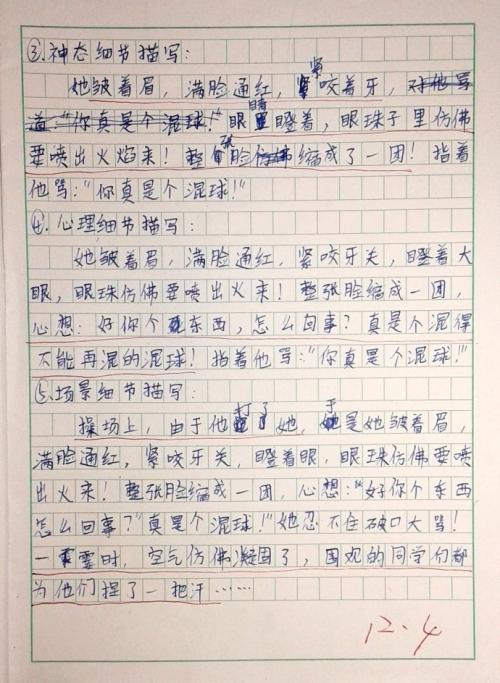 ③.神态细节描写：
她皱着眉，满脸通红，紧咬着牙，对他骂
道："你真是个混球！"眼睛瞪着，眼珠子里仿佛
要喷出火焰来！整张脸仿佛缩成了一团！指着
他骂："你真是个混球！"
④.心理细节描写：
她皱着眉，满脸通红，紧咬牙关，瞪着大
眼，眼珠仿佛要喷出火来！整张脸缩成一团，
心想：好你个死东西，怎么回事？真是个混得
不能再混的混球！指着他骂："你真是个混球！"
⑤.场景细节描写：
操场上，由于他打了她，于是她皱着眉，
满脸通红，紧咬牙关，瞪着眼，眼珠仿佛要喷
出火来！整张脸缩成一团，心想："好你个东西
怎么回事？"真是个混球！"她忍不住破口大骂！
一霎时，空气仿佛凝固了，围观的同学们都
为他们捏了一把汗……
12.4